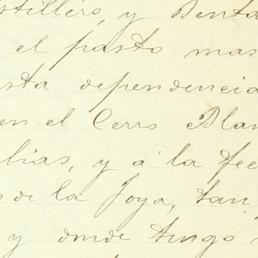 stillero, y Benta
el pasto mas
sta dependencia
en el Cerro Blan
lias, y á la fec
s de la Joya, tan
y donde tengo